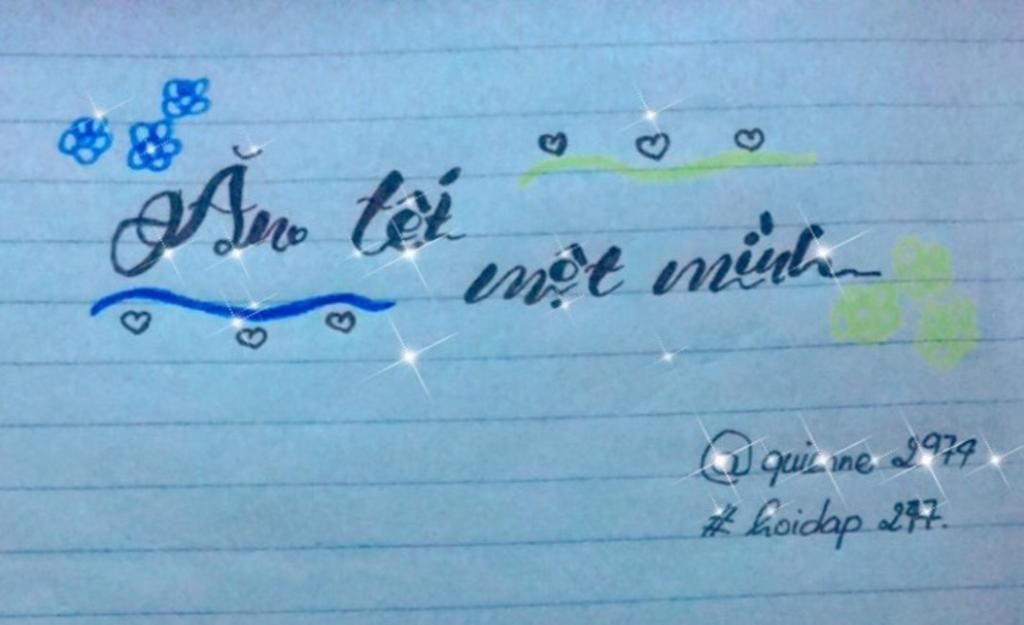 Ăn tết
một mình
@quinne 2974
# hoidap 247.